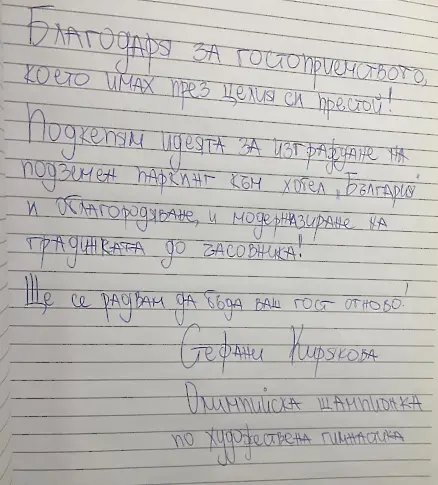 Благодаря за гостоприемството,
което имах през целия си престой!
Подкепям идеята за изграждане на
подземен паркинг към хотел „България"
и облагородяване, и модернизиране на
градинката до часовника!
Ще се радвам да бъда ваш гост отново!
Стефани Кирякова
Олимпийска шампионка
по художествена гимнастика